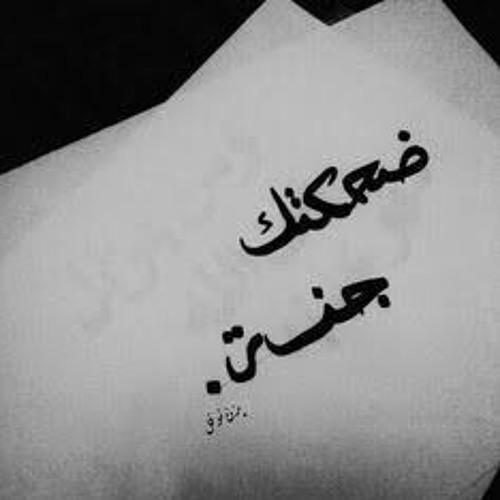 ضحكتك
جنة.